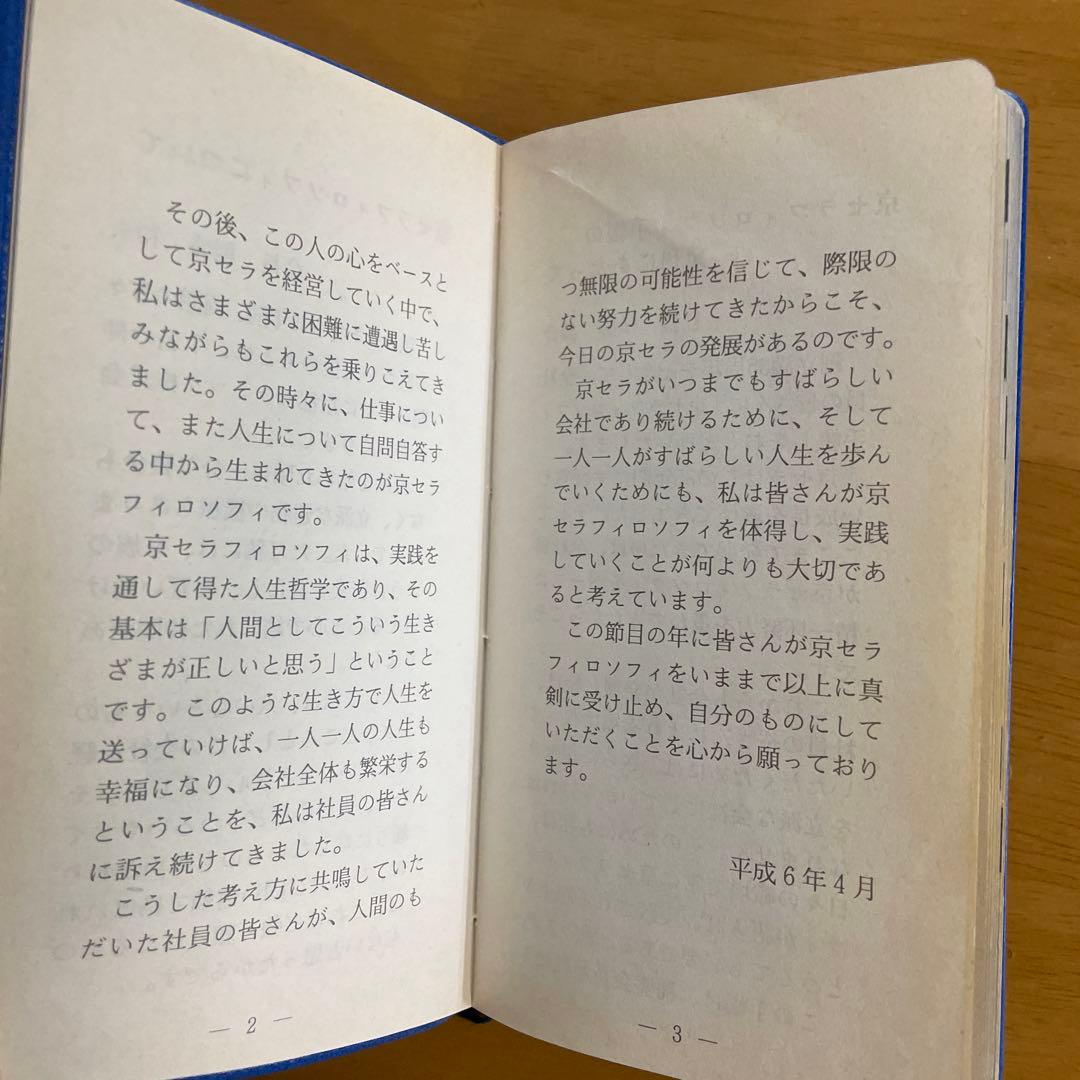 その後、この人の心をベースと
して京セラを経営していく中で、
私はさまざまな困難に遭遇し苦し
みながらもこれらを乗りこえてき
ました。その時々に、仕事につい
て、また人生について自問自答す
る中から生まれてきたのが京セラ
フィロソフィです。
京セラフィロソフィは、実践を
通して得た人生哲学であり、その
基本は「人間としてこういう生き
ざまが正しいと思う」ということ
です。このような生き方で人生を
送っていけば、一人一人の人生も
幸福になり、会社全体も繁栄する
ということを、私は社員の皆さん
に訴え続けてきました。
こうした考え方に共鳴していた
だいた社員の皆さんが、人間のも
— 2 —
つ無限の可能性を信じて、際限の
ない努力を続けてきたからこそ、
今日の京セラの発展があるのです。
京セラがいつまでもすばらしい
会社であり続けるために、そして
一人一人がすばらしい人生を歩ん
でいくためにも、私は皆さんが京
セラフィロソフィを体得し、実践
していくことが何よりも大切であ
ると考えています。
この節目の年に皆さんが京セラ
フィロソフィをいままで以上に真
剣に受け止め、自分のものにして
いただくことを心から願っており
ます。
平成6年4月
— 3 —